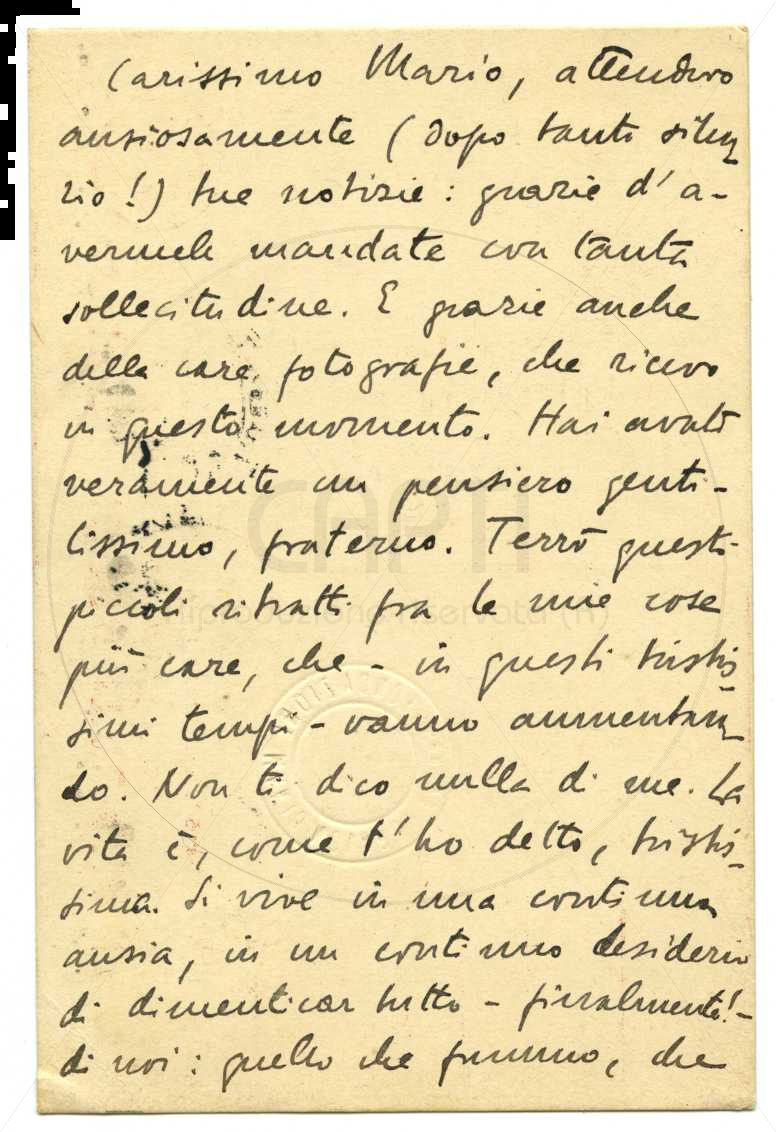 Carissimo Mario, attendevo
ansiosamente (dopo tanto silen
zio!) tue notizie: grazie d'a-
vermele mandate con tanta
sollecitudine. E grazie anche
delle care fotografie, che ricevo
in questo momento. Hai avuto
veramente un pensiero genti-
lissimo, fraterno. Terrò questi
piccoli ritratti fra le mie cose
più care, che - in questi tristis
simi tempi - vanno aumentan
do. Non ti dico nulla di me. La
vita è, come t'ho detto, tristis-
sima. Si vive in una continua
ansia, in un continuo desiderio
di dimenticar tutto - finalmente! -
di noi: quello che fummo, che
CAPTI
Riproduzione riservata (R)